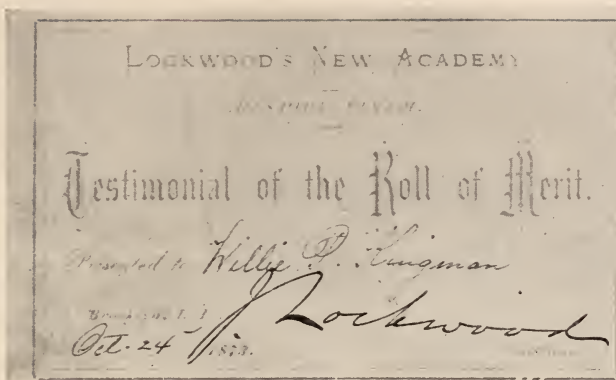 LOCKWOOD'S NEW ACADEMY
Testimonial of the Roll of Merit.
Presented to Willie P. Kingman
Brooklyn, L. I.
J Lockwood
Oct. 24 1873.